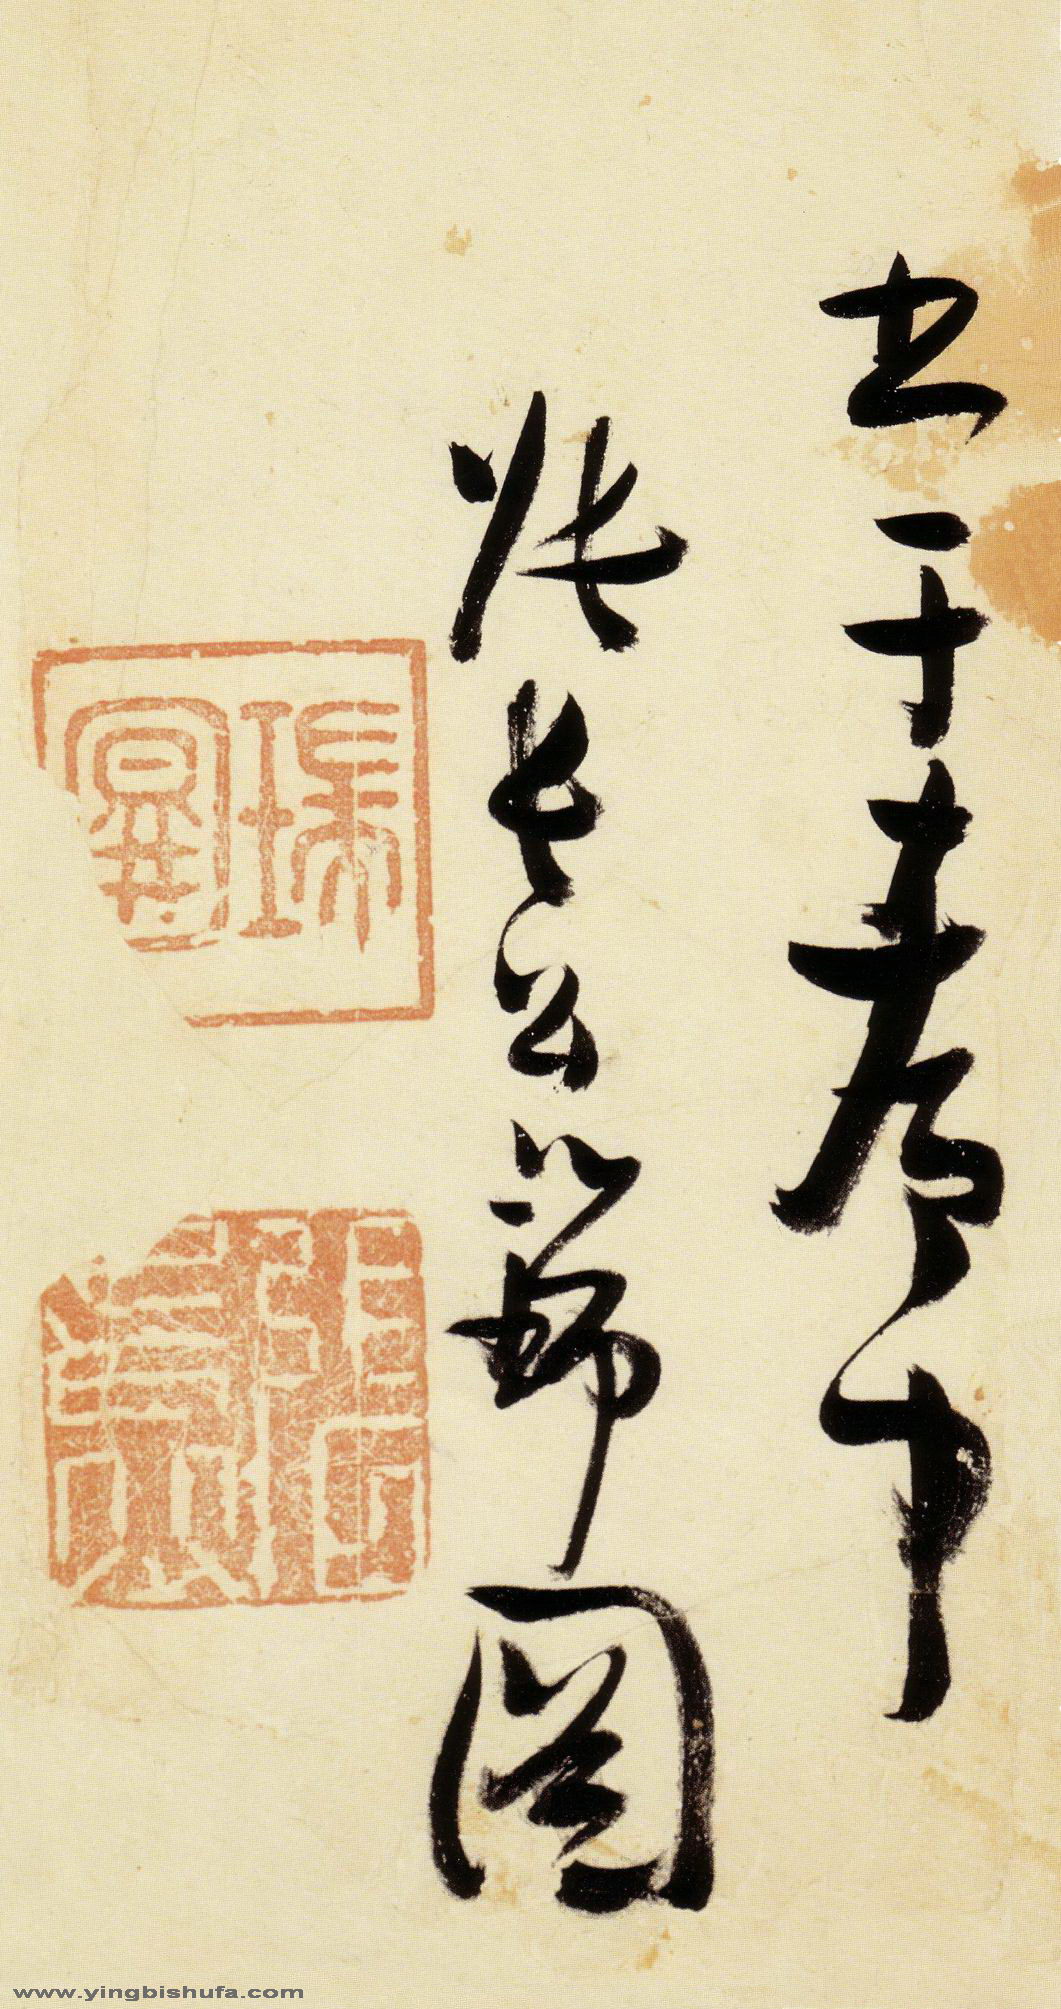 書于
張長公瑞圖
瑞圖
張長公
www.yingbishufa.com